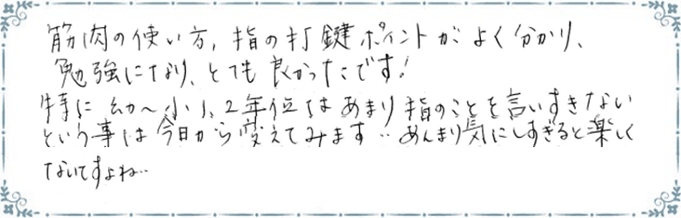 筋肉の使い方、指の打鍵ポイントがよく分かり、
勉強になり、とても良かったです!
特に幼〜小1、2年位はあまり指のことを言いすぎない
という事は今日から変えてみます‥あんまり気にしすぎると楽しく
ないですよね‥